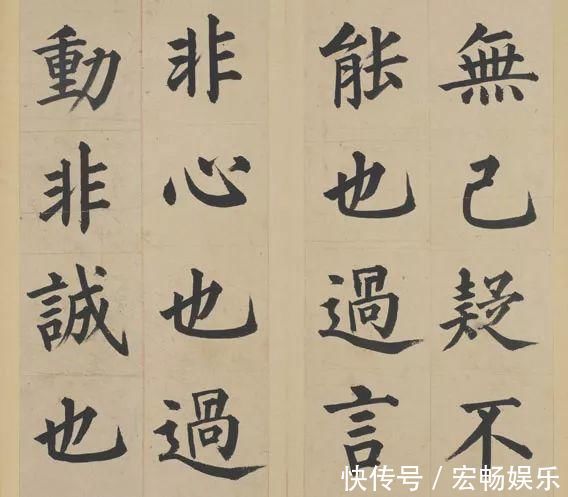 無己疑不
能也過言
非心也過
動非誠也
快传号/宏畅娱乐